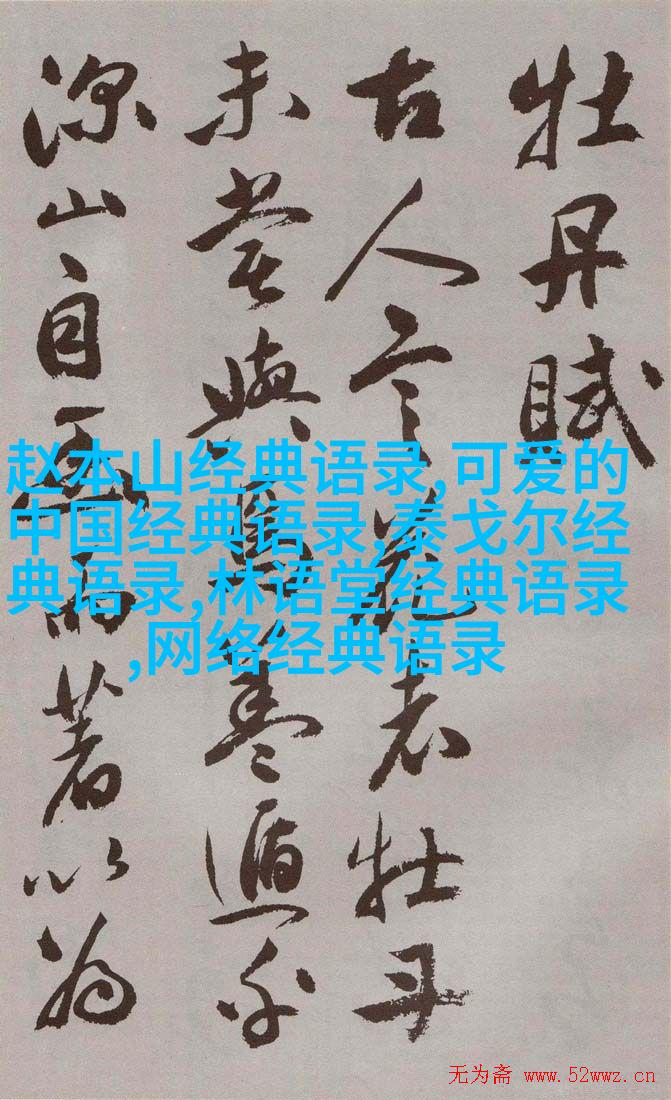 牡丹賦
古人言花者牡丹
未嘗與焉蓋遁
深山自幽而著以為
赵本山经典语录,可爱的
中国经典语录,泰戈尔经
典语录,林语堂经典语录
,网络经典语录
无为斋 www.52wwz.cn